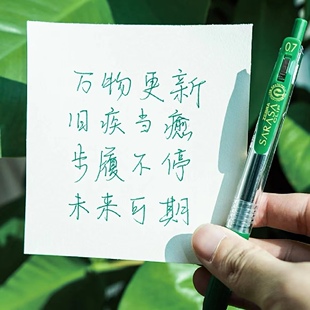 万物更新
旧疾当癒
步履不停
未来可期
0.7
SARASA